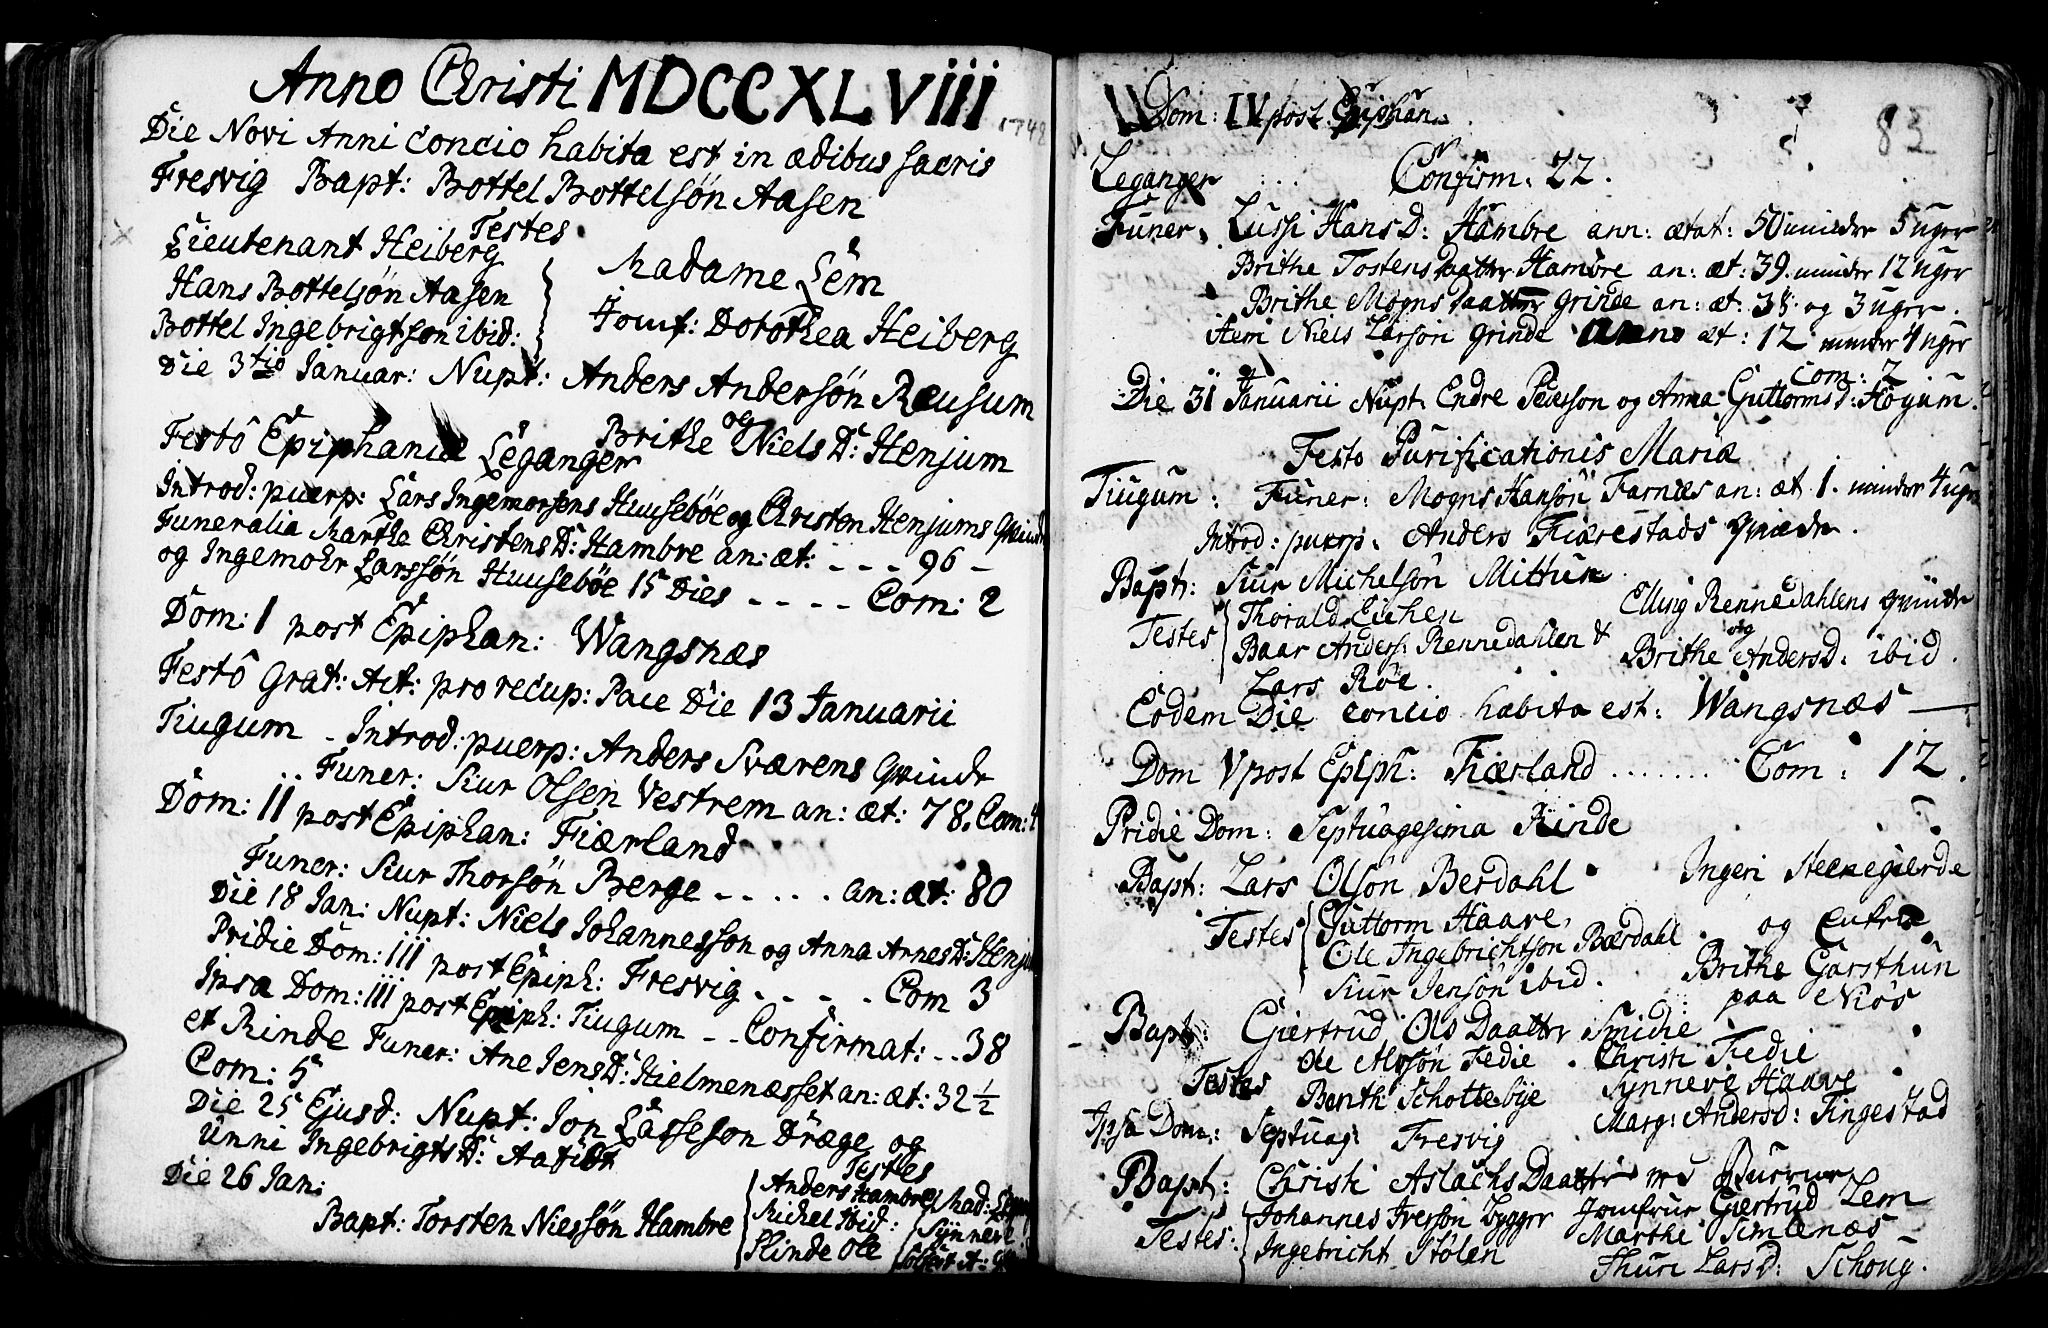 Anno Christi MDCCXLVIII
1748
Die Novi Anni Concio habita est in ædibus sacris
Fresvig Bapt: Bottel Bottelsøn Aasen
Testes
Lieutenant Heiberg
Hans Bottelsøn Aasen
Bottel Ingebrigtson ibid:
Madame Lem
Jomf: Dorothea Heiberg
Die 3tio Januar: Nupt: Anders Andersøn Reusum
og
Brithe Niels D: Henjum
Festo Epiphaniæ Leganger
Introd: puerp: Lars Ingemorsens Huusebøe og Christen Henjums Qvinde
Funeralia Marthe Christens D: Hambre an: æt: - - - 96 -
og Ingemohr Larssøn Huusebøe 15 Dies - - - - Com: 2
Dom: 1 post Epiphan: Wangsnæs
Festô Grat: Act: pro recup: Pace Die 13 Januarii
Tiugum - Introd: puerp: Anders Sværens Qvinde
Funer: Siur Olsen Vestrem an: æt: 78. Com: 4
Dom: II post Epiphan: Fiærland
Funer: Siur Thorsøn Berge - - . . . an: æt: 80
Die 18 Jan: Nupt: Niels Johannesson og Anna Arnes D: Henjum
Pridie Dom: III post Epiph: Fresvig - - - - Com 3
Ipsa Dom: III post Epiph: Tiugum - - Confirmat: - - 38
et Rinde Funer: Ane Jens D: Hielmenæsset an: æt: 32 1/2
Com: 5
Die 25 Ejusd: Nupt: Jon Lasseson Dræge og
Unni Ingebrigts D:
Die 26 Jan:
Testes
Bapt: Torsten Nielssøn Hambre
Anders Hambre
Michel ibid:
Slinde Ole
Mad:
Synneve
83
Dom: IV post Epiphan.
Leganger . . . Confirm: 22.
Funer. Lussi Hans D: Hambre ann: ætat: 50 minder 5 uger
Brithe Tostens Daatter Hambre an: æt: 39. minder 12 uger
Brithe Mogns Daatter Grinde an: æt: 38 og 3 uger.
item Niels Larson Grinde Anno æt: 12 minder 4 uger
Com: 2
Die 31 Januarii Nupt. Endre Peerson og Anna Guttorms d: Høyum.
Festo Purificationis Mariæ
Tiugum: Funer: Mogns Hansøn Farnæs an: æt 1. minder 4 uger
Introd: puerp. Anders Fiærestads Qvinde.
Bapt: Siur Michelsøn Mittun
Testes
Thorald Eichen
Baar Anders: Rennedahlen &
Lars Røe.
Elling Rennedahlens Qvinde
og
Brithe Andersd: ibid.
Eodem Die concio habita est: Wangsnæs
Dom V post Epiph: Fiærland . . . . . . . Com: 12.
Pridie Dom: Septuagesima Rinde
Bapt: Lars Olsøn Berdahl
Testes
Guttorm Haave,
Ole Ingebrichtson Bærdahl
Siur Jensøn ibid.
Ingeri Steenegierde
og Enken
Brithe Garsthun
paa Niøs
Bapt: Giertrud Ols Daatter Smidie
Testes
Ole Fedie
Benth Schottebye
Christi Fedie
Synneve Haave
Marg: Andersd: Tingestad
Ipsa Dom: Septuag: Fresvig
Bapt: Christi Aslachs Daatter
Testes:
Johannes Iverson
Ingebricht Stølen
Jomfrue Giertrud Lem
Marthe Simlenæs
Thuri Larsd: Schoug.